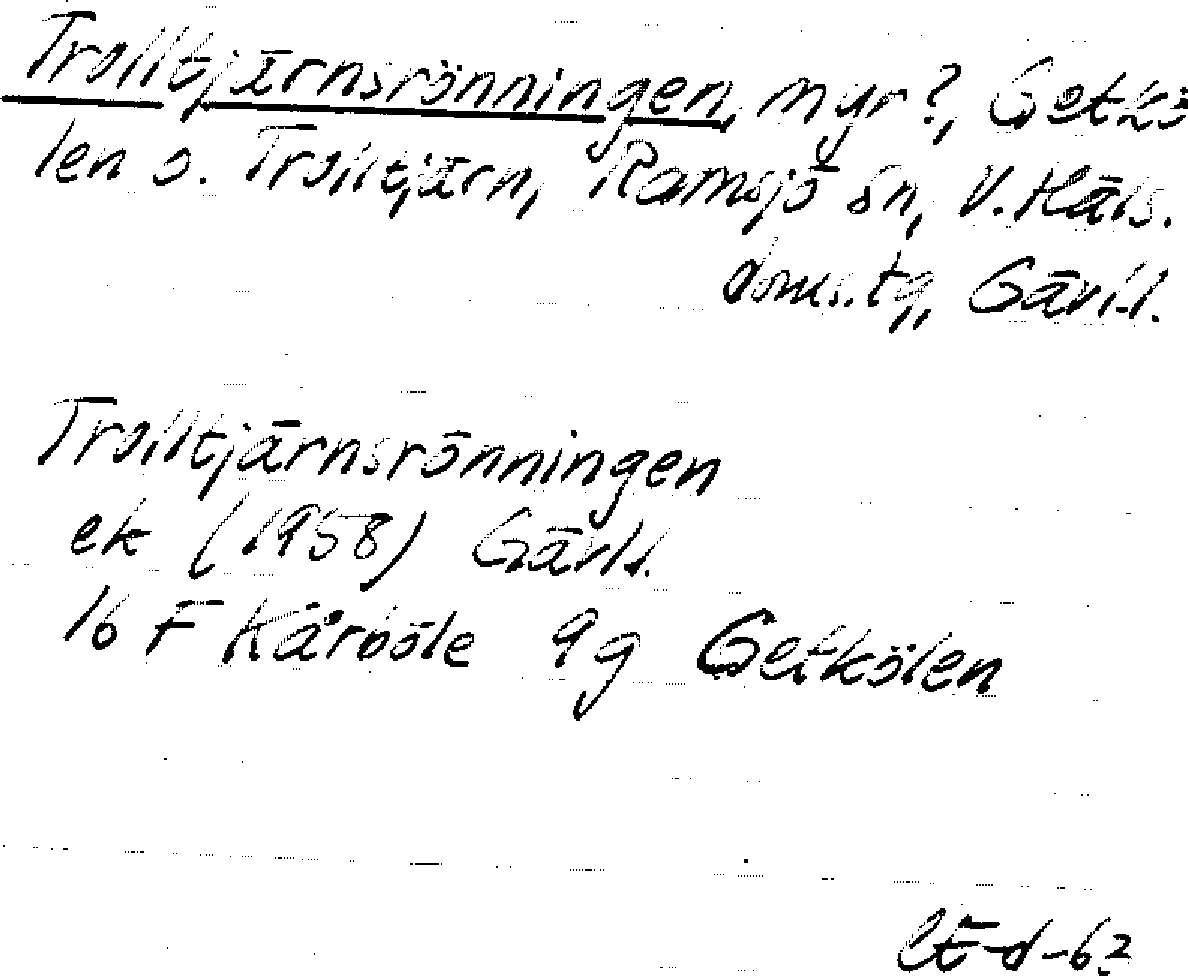 Trolltjärnsrönningen, myr?, Getkö
len o. Trolltjärn, Ramsjö sn, V. Häls.
doms.tg, Gävl.l.
Trolltjärnsrönningen
ek (1958) Gävl.l.
16 F Kårböle 9g Getkölen